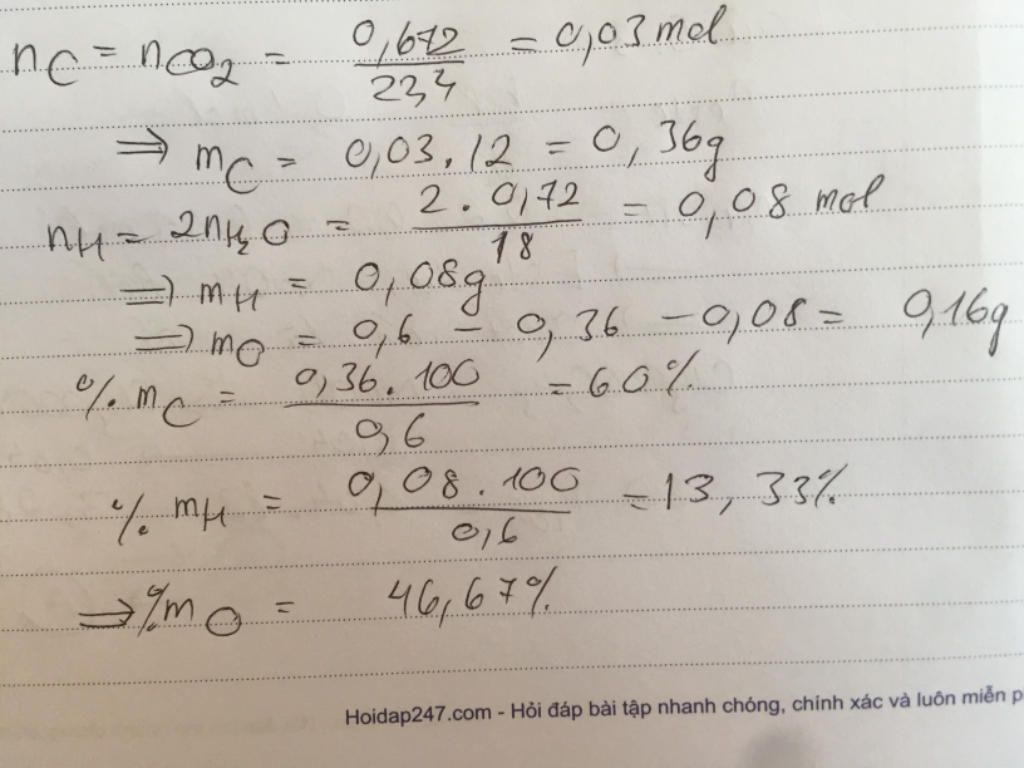 nC = nCO2 = 0,672/22,4 = 0,03 mol
⇒ mC = 0,03.12 = 0,36g
nH = 2nH2O = 2.0,72/18 = 0,08 mol
⇒ mH = 0,08g
⇒ mO = 0,6 - 0,36 - 0,08 = 0,16g
% mC = 0,36.100/0,6 = 60%
% mH = 0,08.100/0,6 = 13,33%
⇒ %mO = 46,67%
Hoidap247.com - Hỏi đáp bài tập nhanh chóng, chính xác và luôn miễn p